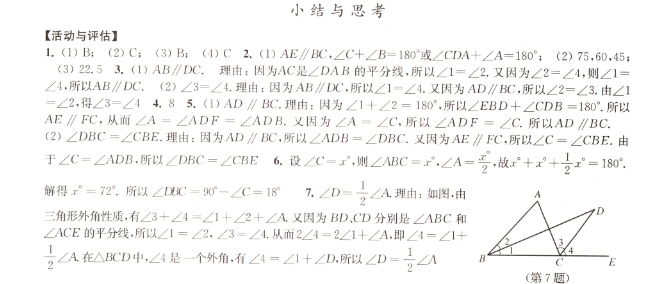 小结与思考
【活动与评估】
1. (1) B; (2) C; (3) B; (4) C 2. (1) AE∥BC,∠C+∠B=180°或∠CDA+∠A=180°; (2) 75,60,45;
(3) 22.5 3. (1) AB∥DC. 理由:因为AC是∠DAB的平分线,所以∠1=∠2.又因为∠2=∠4,则∠1=
∠4,所以AB∥DC. (2) ∠3=∠4.理由:因为AB∥DC,所以∠1=∠4.又因为AD∥BC,所以∠2=∠3.由∠1
=∠2,得∠3=∠4 4. 8 5. (1) AD∥BC.理由:因为∠1+∠2=180°,所以∠EBD+∠CDB=180°.所以
AE∥FC,从而∠A=∠ADF=∠ADB.又因为∠A=∠C,所以∠ADF=∠C.所以AD∥BC.
(2) ∠DBC=∠CBE.理由:因为AD∥BC,所以∠ADB=∠DBC.又因为AE∥FC,所以∠C=∠CBE.由
于∠C=∠ADB,所以∠DBC=∠CBE 6. 设∠C=x°,则∠ABC=x°,∠A=x°/2,故x°+x°+1/2x°=180°.
解得x°=72°.所以∠DBC=90°-∠C=18° 7. ∠D=1/2∠A.理由:如图,由
三角形外角性质,有∠3+∠4=∠1+∠2+∠A.又因为BD、CD分别是∠ABC和
∠ACE的平分线,所以∠1=∠2,∠3=∠4.从而2∠4=2∠1+∠A,即∠4=∠1+
1/2∠A.在△BCD中,∠4是一个外角,有∠4=∠1+∠D,所以∠D=1/2∠A
A
D
2
1
3
4
B
C
E
(第7题)